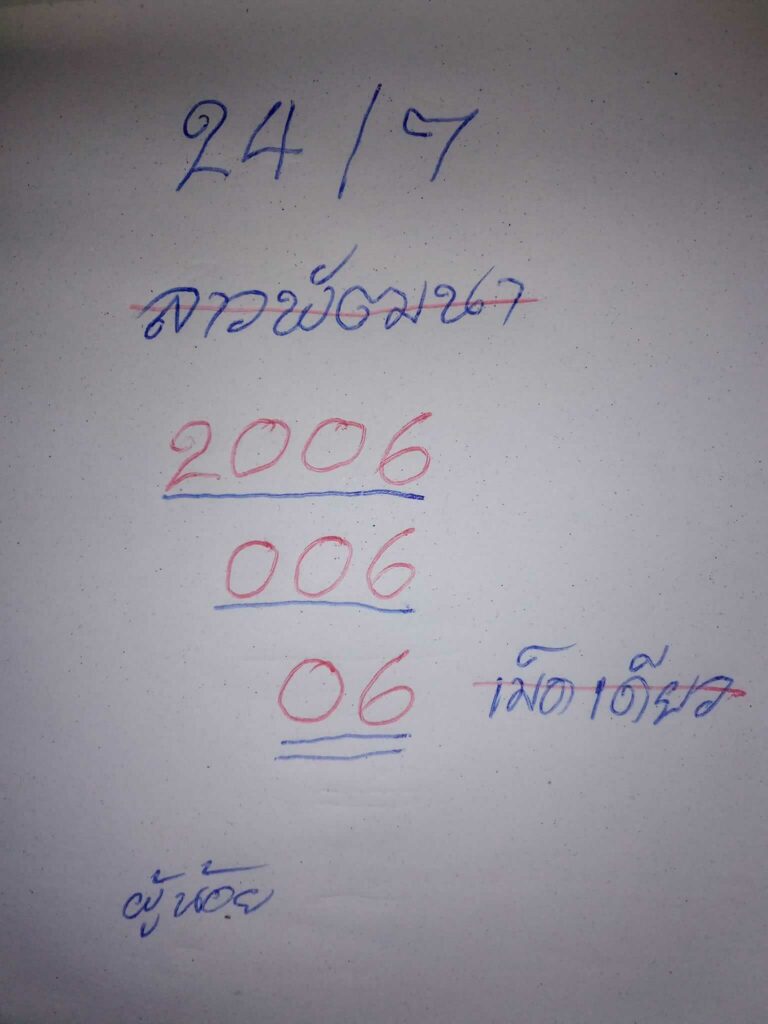 24/7
ลาวพัฒนา
2006
006
06 เม็ดเดียว
ผู้น้อย